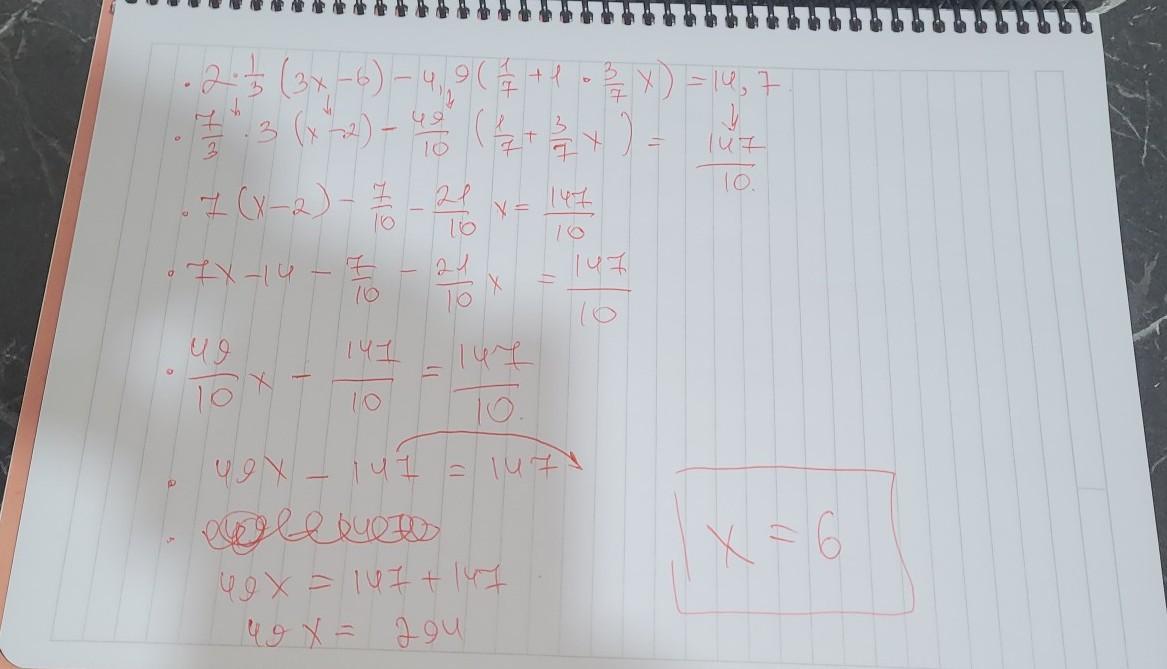 . 2 · 1/3 (3x - 6) - 4,9 (1/7 + 1 · 3/7 x) = 14,7
. 7/3 · 3 (x - 2) - 49/10 (1/7 + 3/7 x) = 147/10.
. 7 (x - 2) - 7/10 - 21/10 x = 147/10
. 7x - 14 - 7/10 - 21/10 x = 147/10
. 49/10 x - 147/10 = 147/10.
. 49x - 147 = 147
.
49x = 147 + 147
49x = 294
x = 6